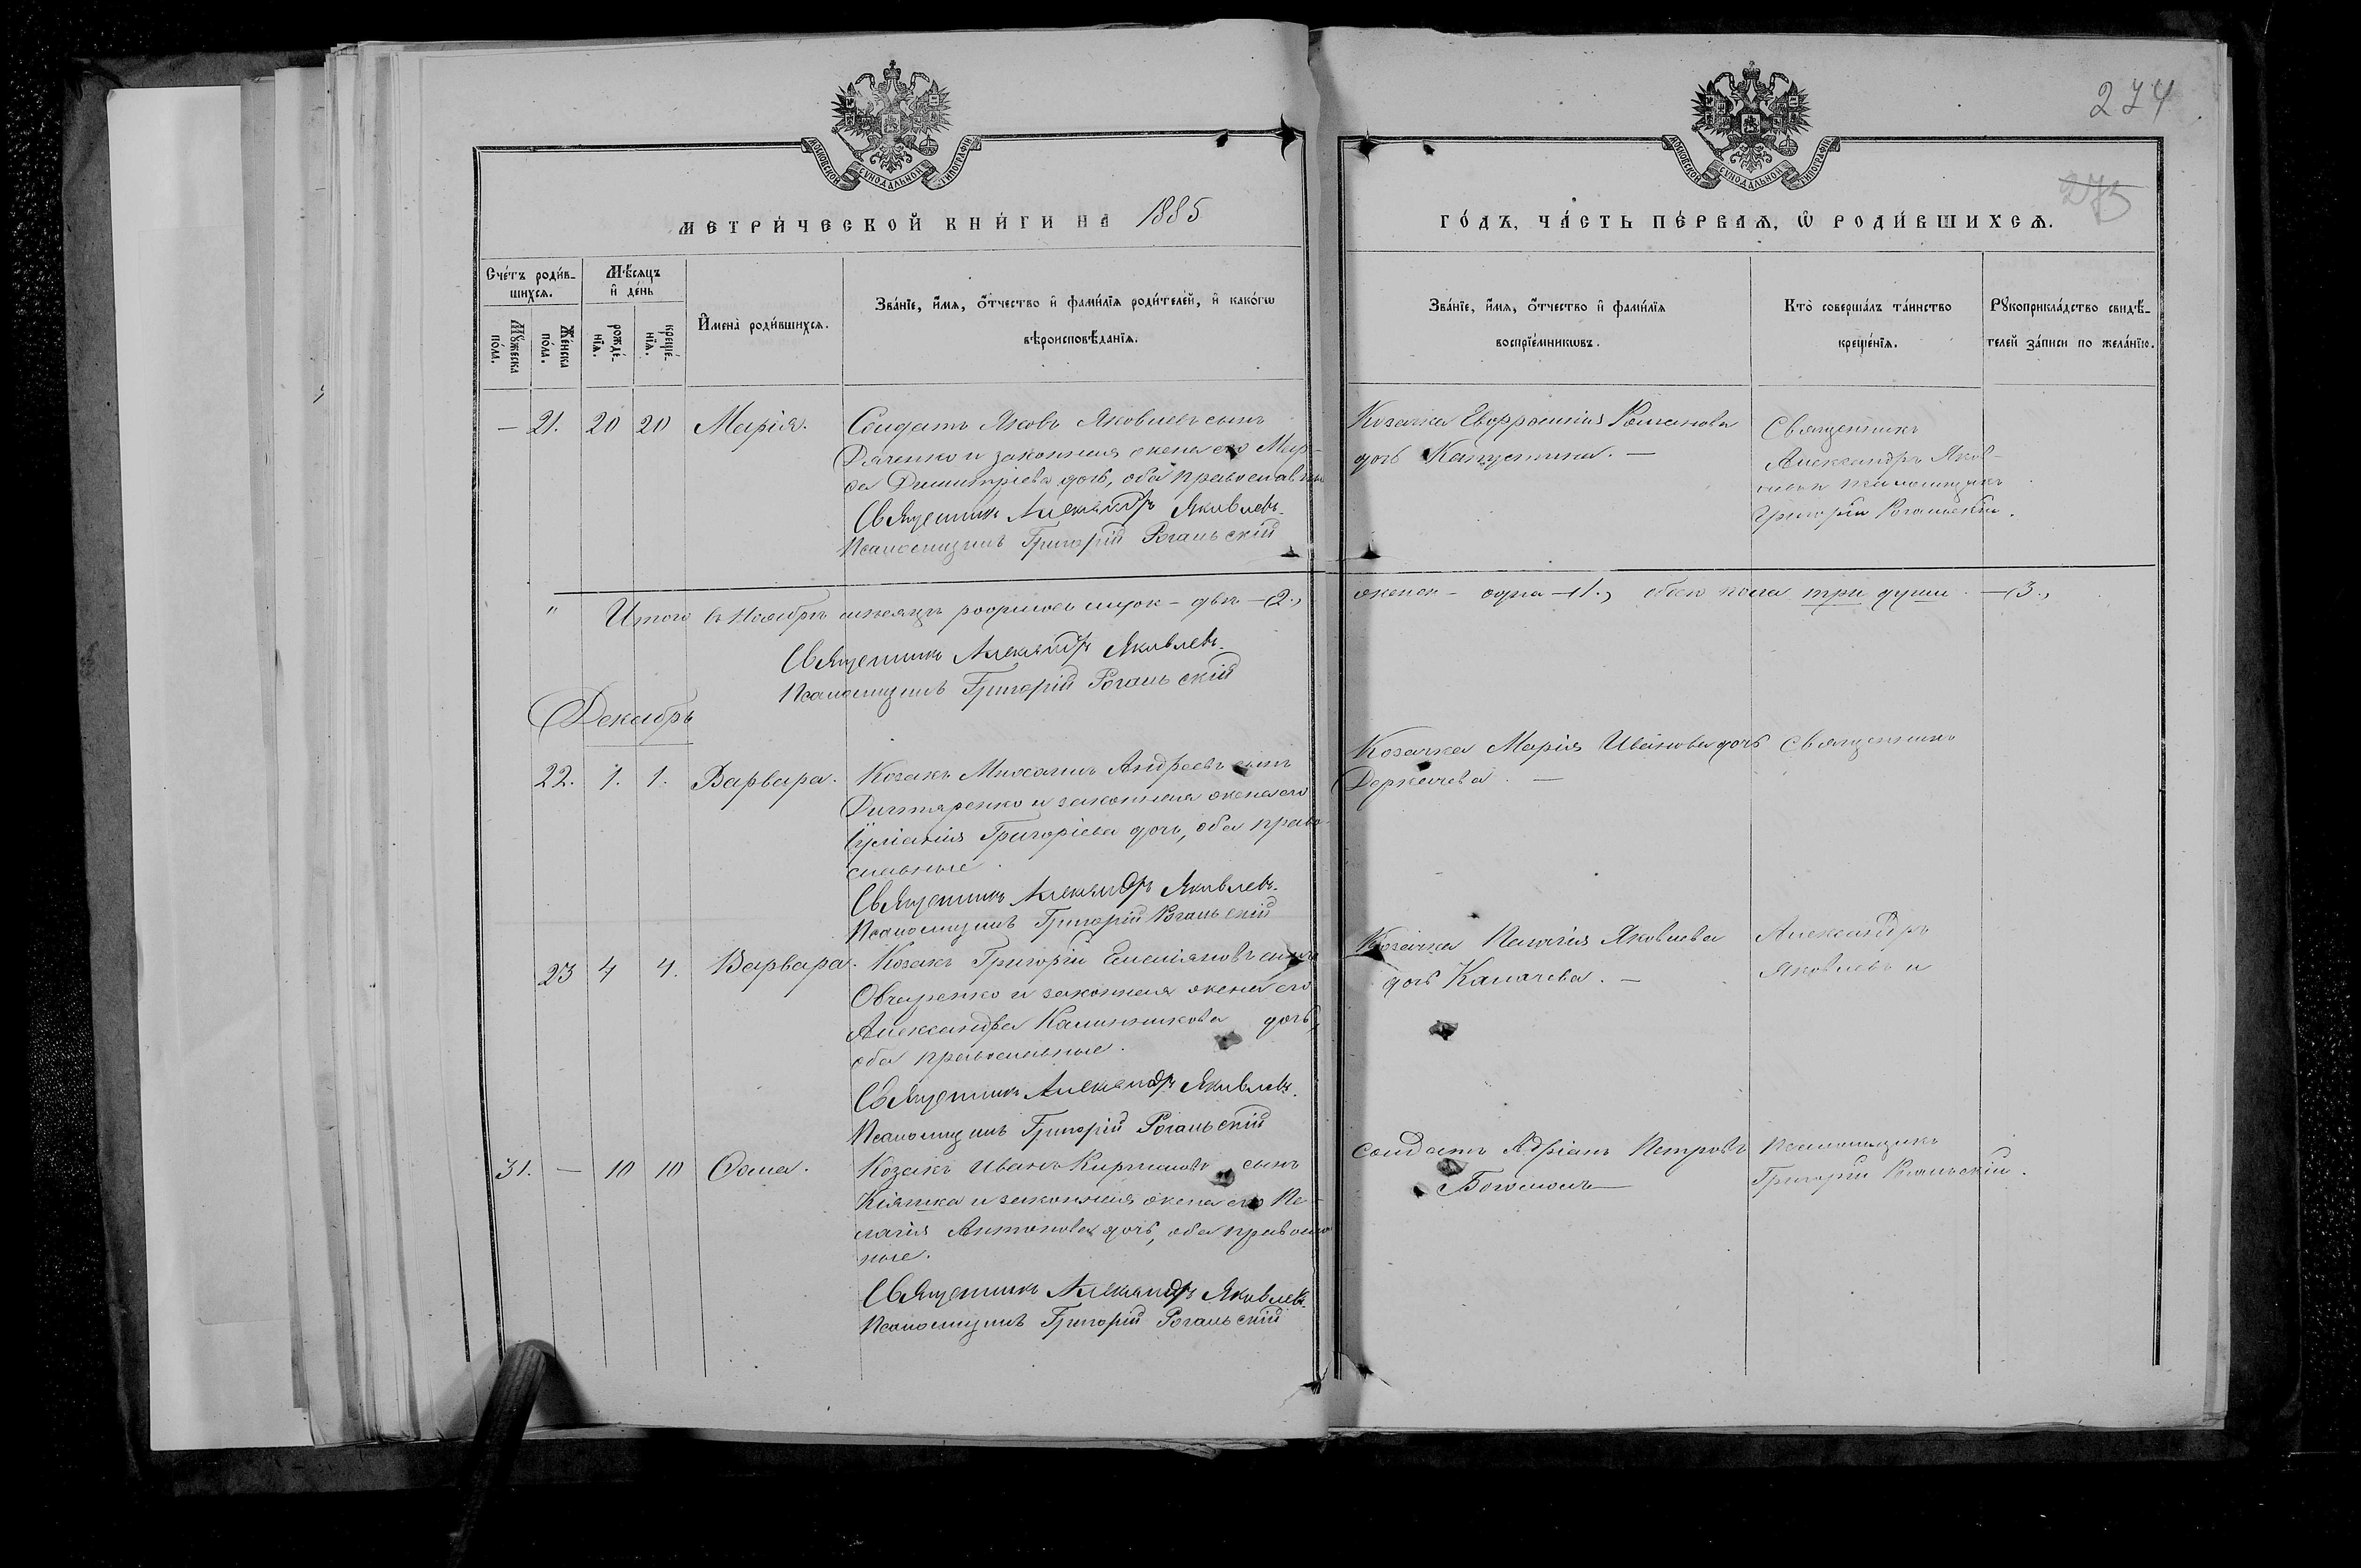 274
275
МОСКОВСКОЙ СѴНОДАЛЬНОЙ ТИПОГРАФІИ
МОСКОВСКОЙ СѴНОДАЛЬНОЙ ТИПОГРАФІИ
МЕТРИ́ЧЕСКОЙ КНИ́ГИ НА 1885
ГО́ДЪ, ЧА́СТЬ ПЕ́РВАѦ, Ѡ РОДИ́ВШИХСѦ.
Сче́тъ роди́в-
шихсѧ.
Мꙋ́жеска
по́ла.
Же́нска
по́ла.
Мѣ́сѧцъ
и҆ де́нь
рожде́-
нїѧ.
креще́-
нїѧ.
И҆мена̀ роди́вшихсѧ.
Зва́нїе, и҆́мѧ, ѻ҆́тчество и҆ фами́лїѧ роди́телей, и҆ како́гѡ
вѣроисповѣ́данїѧ.
Зва́нїе, и҆́мѧ, ѻ҆́тчество и҆ фами́лїѧ
воспрїе́мникѡвъ.
Кто̀ соверша́лъ та́инство
креще́нїѧ.
Рꙋкоприкла́дство свидѣ́-
телей за́писи по жела́нїю.
— 21. 20 20 Марія. Солдатъ Яковъ Яковлевъ сынъ
Дяченко и законная жена его Мар-
ѳа Димитріева дочь, оба православные
Священникъ Александръ Яковлевъ.
Псаломщикъ Григорій Рогальскій
Козачка Евфросинія Романова
дочь Капустина. —
Священникъ
Александръ Яков-
левъ и псаломщикъ
Григорій Рогальскій.
" Итого въ Ноябрѣ мѣсяцѣ родилось муж – двѣ – (2.)
женск – одна – (1.), обоего пола три души. – (3.)
Священникъ Александръ Яковлевъ.
Псаломщикъ Григорій Рогальскій
Декабрь
22. 1. 1. Варвара. Козакъ Михаилъ Андреевъ сынъ
и законная жена его
Іуліанія Григоріева дочь, оба право-
славные.
Священникъ Александръ Яковлевъ.
Псаломщикъ Григорій Рогальскій
Козачка Марія Иванова дочь
Деркачева. —
Священникъ
23 4 4. Варвара. Козакъ Григорій Емеліяновъ сынъ
Овчаренко и законная жена его
Александра Калинникова дочь,
оба православные.
Священникъ Александръ Яковлевъ.
Псаломщикъ Григорій Рогальскій
Козачка Пелагія Яковлева
дочь Калачева. —
Александръ
Яковлевъ и
31. — 10 10 Ѳома. Козакъ Иванъ сынъ
Кіяшка и законная жена его Пе-
лагія Антонова дочь, оба православ-
ные.
Священникъ Александръ Яковлевъ.
Псаломщикъ Григорій Рогальскій
Солдатъ Адріанъ Петровъ
Богомолъ —
псаломщикъ
Григорій Рогальскій.